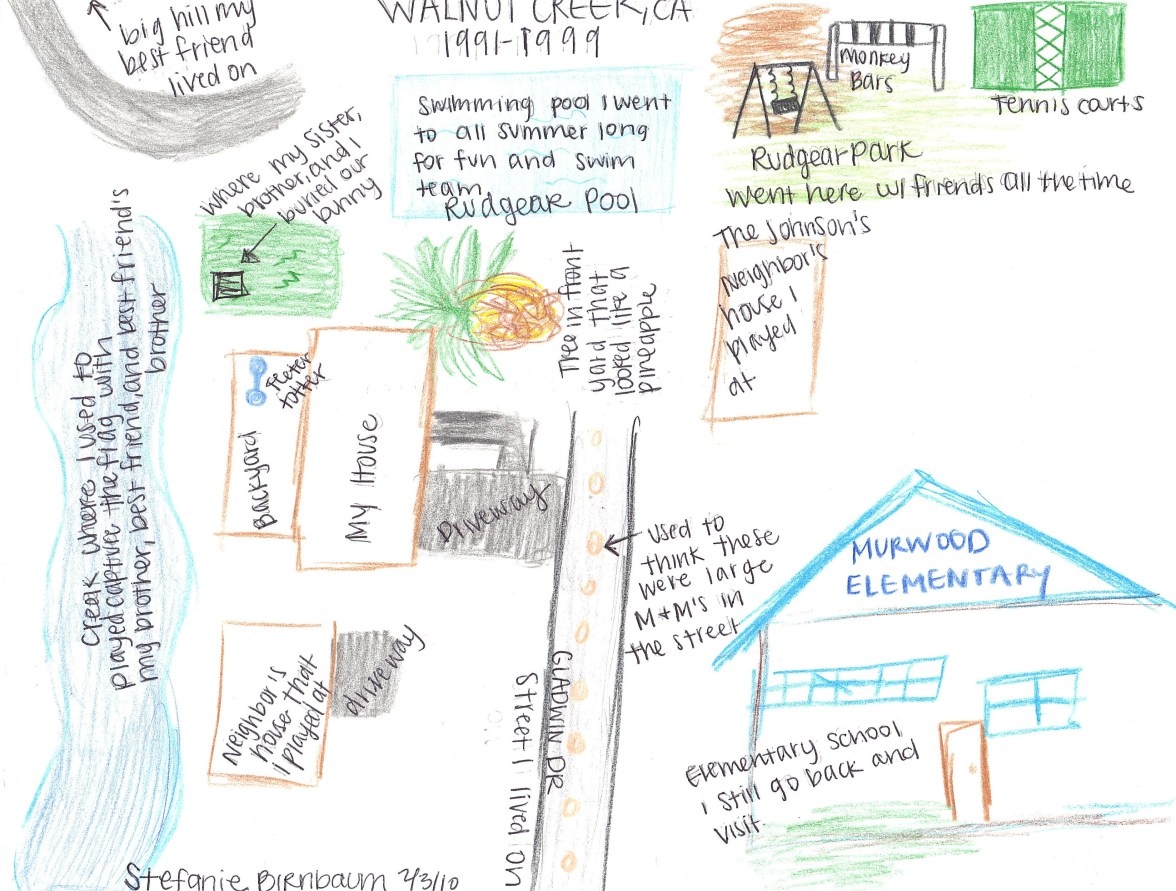 big hill my
best friend
lived on
WALNUT CREEK, CA
1991-1999
Swimming pool I went
to all summer long
for fun and swim
team
Rudgear Pool
Monkey
Bars
Tennis courts
Rudgear Park
went here w/ friends all the time
where my sister,
brother, and I
buried our
bunny
Tree in front
yard that
looked like a
pineapple
The Johnson's
Neighbor's
house I
played
at
Creek where I used to
played captive the flag with
my brother, best friend, and best friend's
brother
Teeter
totter
Backyard
My House
Driveway
used to
think these
were large
M+M's in
the street
MURWOOD
ELEMENTARY
Neighbor's
house that
I played at
driveway
GLADWIN DR
Street I lived on
Elementary School
I still go back and
visit
Stefanie Birnbaum 2/3/10